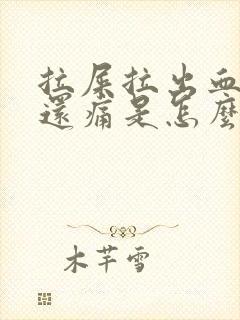 拉屎拉出血
還痛是怎麼
木芊雪